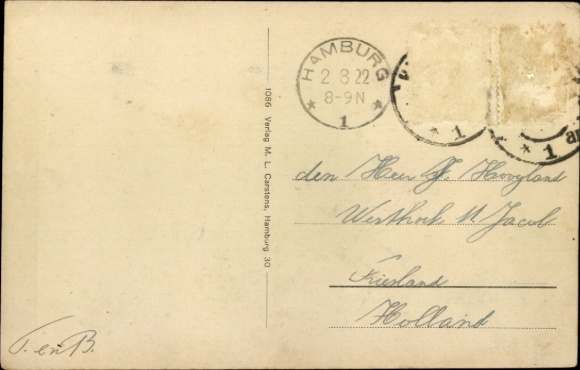 1086 Verlag M. L. Carstens, Hamburg 30
HAMBURG
2 8 22
8-9N
* 1 *
* 1
* 1
den Heer F. Hoogland
Westhoek St. Jacob
Friesland
Holland
T. en B.